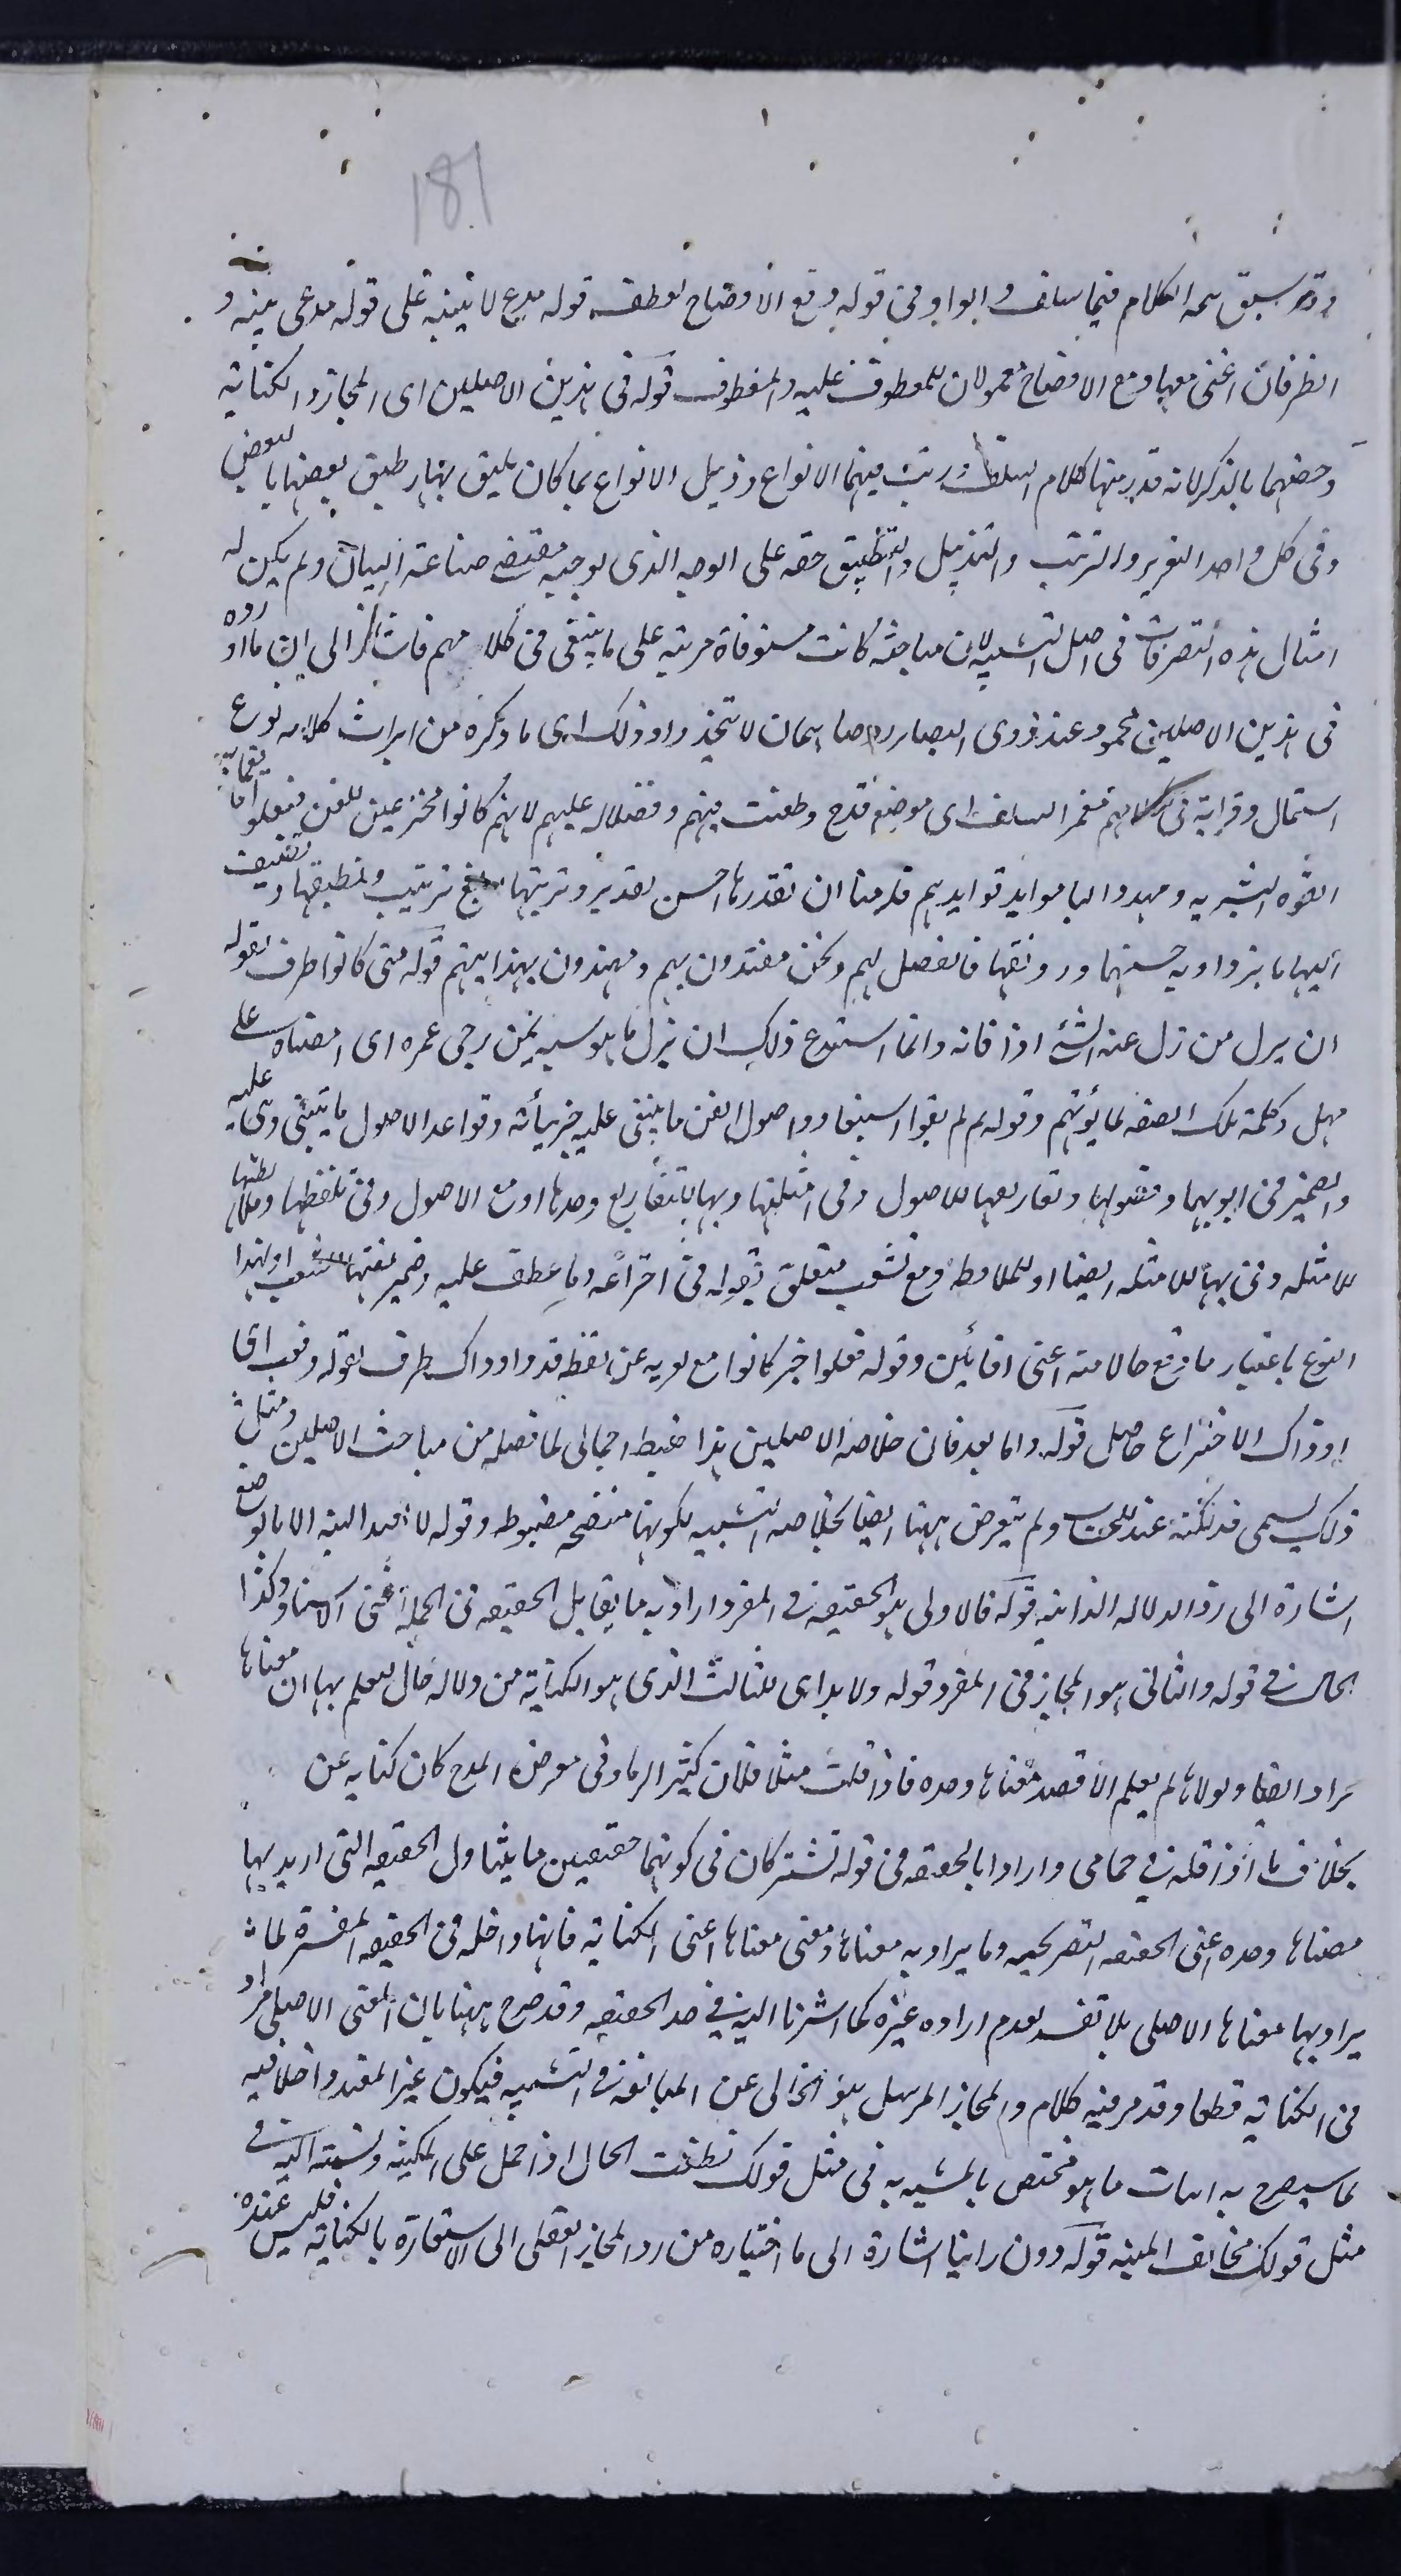 181
وقد سبق تتمة الكلام فيما سلف والواو فى قوله ومع الاوضاح لعطف قوله مدع لا بينه على قوله مدعى بينه و
الظرفان اعنى معها ومع الاوضاح معمولان للمعطوف عليه والمعطوف قوله فى هذين الاصلين اى المجاز والكناية
وخصهما بالذكر لانه قدر منها كلام السلف ورتب فيهما الانواع وذيل الانواع بما كان يليق بها وطبق بعضها بالبعض
وفى كل واحد التقرير والترتيب والتذييل والتطبيق حقه على الوجه الذى يوجبه مقتضى صناعة البيان ولم يكن له
امثال هذه التصرفات فى اصل التشبيه لان مباحثه كانت مستوفاة مرتبة على ما ينبغى فى كلامهم فاشار الى ان ما اورده
فى هذين الاصلين محمود عند ذوى البصائر لا يتخذ وا وذلك اى ما ذكره من ايراث كلامه نوع
استمالة وقرابة فى كلامهم مغمر السلف اى موضع قدح وطعنت فيهم وفضلا له عليهم لانهم كانوا مخترعين للفن فبعلوا
القوة البشرية ومهدوا لنا موايد فوايدهم فلزمنا ان نقدرها احسن تقدير ونرتبها ابلغ ترتيب وتطبيقها و
اليها ما يزداد به حسنها ورونقها فالفضل لهم ونحن مقتدون بهم ومهتدون بهدايتهم قوله متى كانوا ظرف لقوله
ان يزل من زل عنه الشئ اذا فاته وانما استبدع ذلك ان يزل ما هو سبيه لمن زجى عمره اى امضاه على
مهل وكلمة تلك الصفه لما يؤتهم وقوله لم يبقوا استيفا واصول الفن ما ينبنى عليه جزئياته وقواعد الاصول ما يبتنى هى عليه
والضمير فى ابوبها وفصولها وتفاريعها للاصول وفى امثلتها وبها للتفاريع وحدها او مع الاصول وفى تلفظها
للامثله وفى بها للامثله ايضا او للملاحظه ومع تشعب متعلق بقوله فى اختراعه وما عطف عليه وضمير
النوع باعتبار ما وقع حالا منه اعنى افانين وقوله فعلوا خبر كانوا مع تعريه عن لفظ قد و اذ ذاك ظرف لقوله وقعت اى
اذ ذاك الاختراع حاصل قوله واما بعد فان خلاصة الاصلين هذا ضبط اجمالى لما فصله من مباحث الاصلين ومثل
ذلك يسمى فذلكة عند الحساب ولم يتعرض ههنا ايضا لخلاصة التشبيه لكونها متضحة مضبوطة وقوله لا تفيد البتة الا بالوضع
اشارة الى رد الدلاله الذاتية قوله فالاولى هو الحقيقة فى المفرد اراد به ما يقابل الحقيقة فى الجملة اعنى الاسناد وكذا
الحال فى قوله والثانى هو المجاز فى المفرد قوله ولا بد اى للثالث الذى هو الكناية من دلالة حال يعلم بها ان معناها
يراد ايضا ولولاها لم يعلم الا قصد معناها وحده فاذا قلت مثلا فلان كثير الرماد فى معرض المدح كان كناية عن
بخلاف ما اذا قلته فى حمامى واراد بالحقيقة فى قوله تشتركان فى كونهما حقيقتين ما يتناول الحقيقة التى اريد بها
معناها وحده اعنى الحقيقة التصريحية وما يراد به معناها ومعنى معناها اعنى الكناية فانها داخلة فى الحقيقة المفسرة بما
يراد بها معناها الاصلى بلا تقييد بعدم ارادة غيره كما اشرنا اليه فى حد الحقيقة وقد صرح ههنا بان المعنى الاصلى مراد
فى الكناية قطعا وقد مر فيه كلام والمجاز المرسل هو الخالى عن المبالغة فى التشبيه فيكون غير المقيد داخلا فيه
لما سيصرح به اثبات ما هو مختص بالمشبه به فى مثل قولك نطقت الحال اذا حمل على المكنية ونسبته اليه فى
مثل قولك مخالب المنية قوله دون راينا اشارة الى ما اختياره من رد المجاز العقلى الى الاستعارة بالكناية فليس عنده